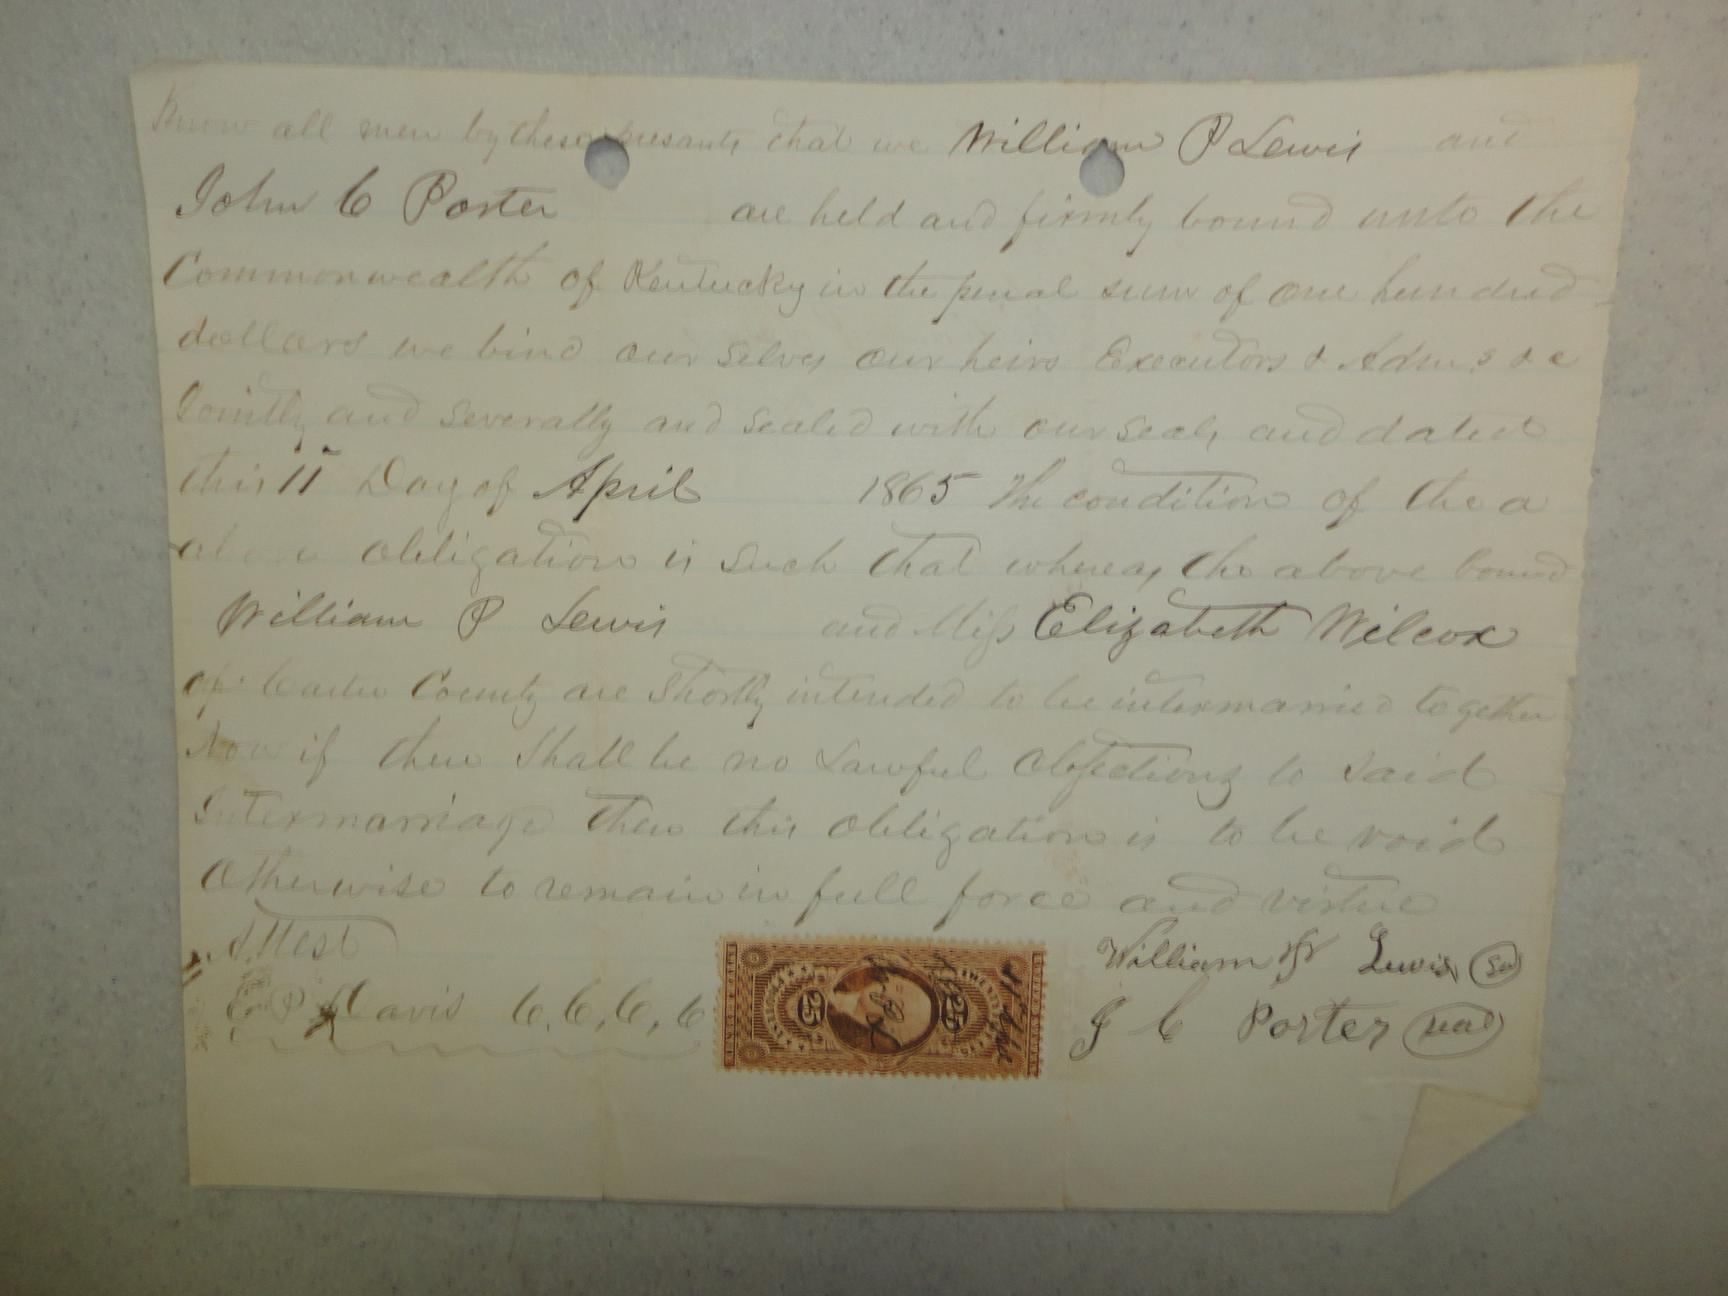 Know all men by these presants that we William P Lewis and
John C Porter are held and firmly bound unto the
Commonwealth of Kentucky in the penal sum of one hundred
dollars we bind our selves our heirs Executors & Adms &c
Jointly and severally and sealed with our seals and dated
this 11 Day of April 1865 The condition of the a
above obligation is such that whereas the above bound
William P Lewis and Miss Elizabeth Wilcox
of Carter County are Shortly intended to be intermarried together
Now if there Shall be no Lawful Objections to Said
Intermarriage then this obligation is to be void
Otherwise to remain in full force and virtue
Attest
William P Lewis Seal
E P Davis C.C.C.C
J C Porter seal
25 25